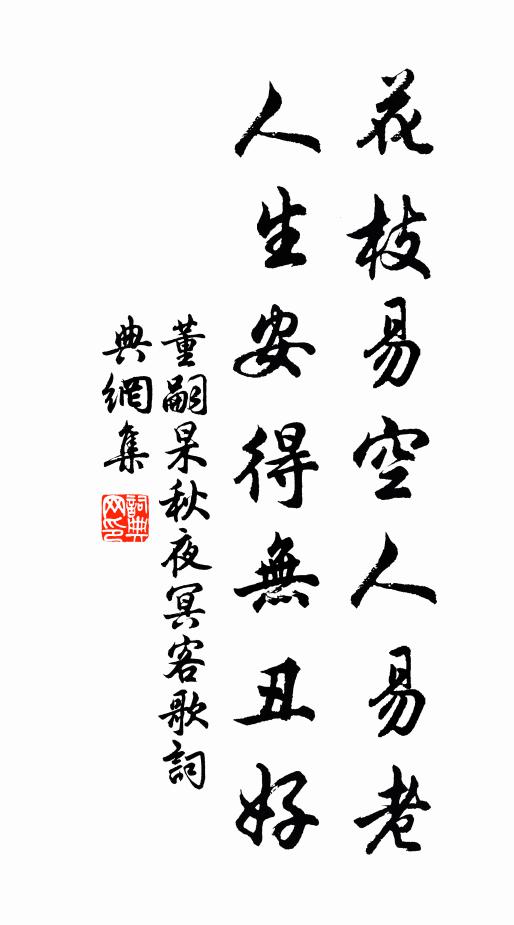 花枝易空人易老
人生安得無丑好
董嗣杲秋夜冥客歌詞
典網集
詞典
网印